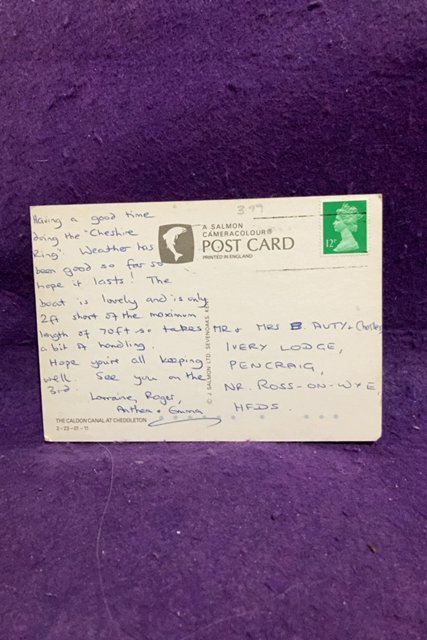 Having a good time
doing the "Cheshire
Ring". Weather has
been good so far so
hope it lasts! The
boat is lovely and is only
2ft short of the maximum
length of 70ft so takes
a bit of handling.
Hope you're all keeping
well. See you on the
3rd
Lorraine, Roger,
Anthea & Emma
THE CALDON CANAL AT CHEDDLETON
2-23-01-11
3.99
A SALMON
CAMERACOLOUR®
POST CARD
PRINTED IN ENGLAND
© J. SALMON LTD. SEVENOAKS, KENT
12P
MR & MRS B. AUTY & Charles
IVERY LODGE,
PENCRAIG,
NR. ROSS-ON-WYE
HFDS.